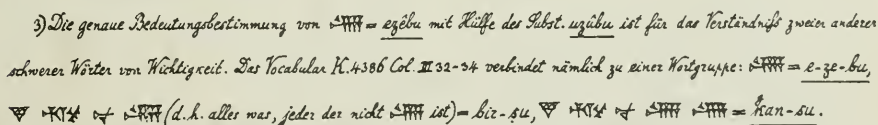 3) Die genaue Bedeutungsbestimmung von = ezêbu mit Hülfe des Subst. uzûbu ist für das Verständniſs zweier anderer
schwerer Wörter von Wichtigkeit. Das Vocabular K. 4386 Col. III 32-34 verbindet nämlich zu einer Wortgruppe: = e-ze-bu,
(d. h. alles was, jeder der nicht ist) = bir-ṣu, = kan-su.